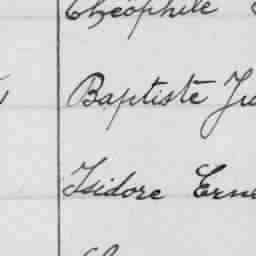 Théophile
Baptiste Ju
Isidore Erne